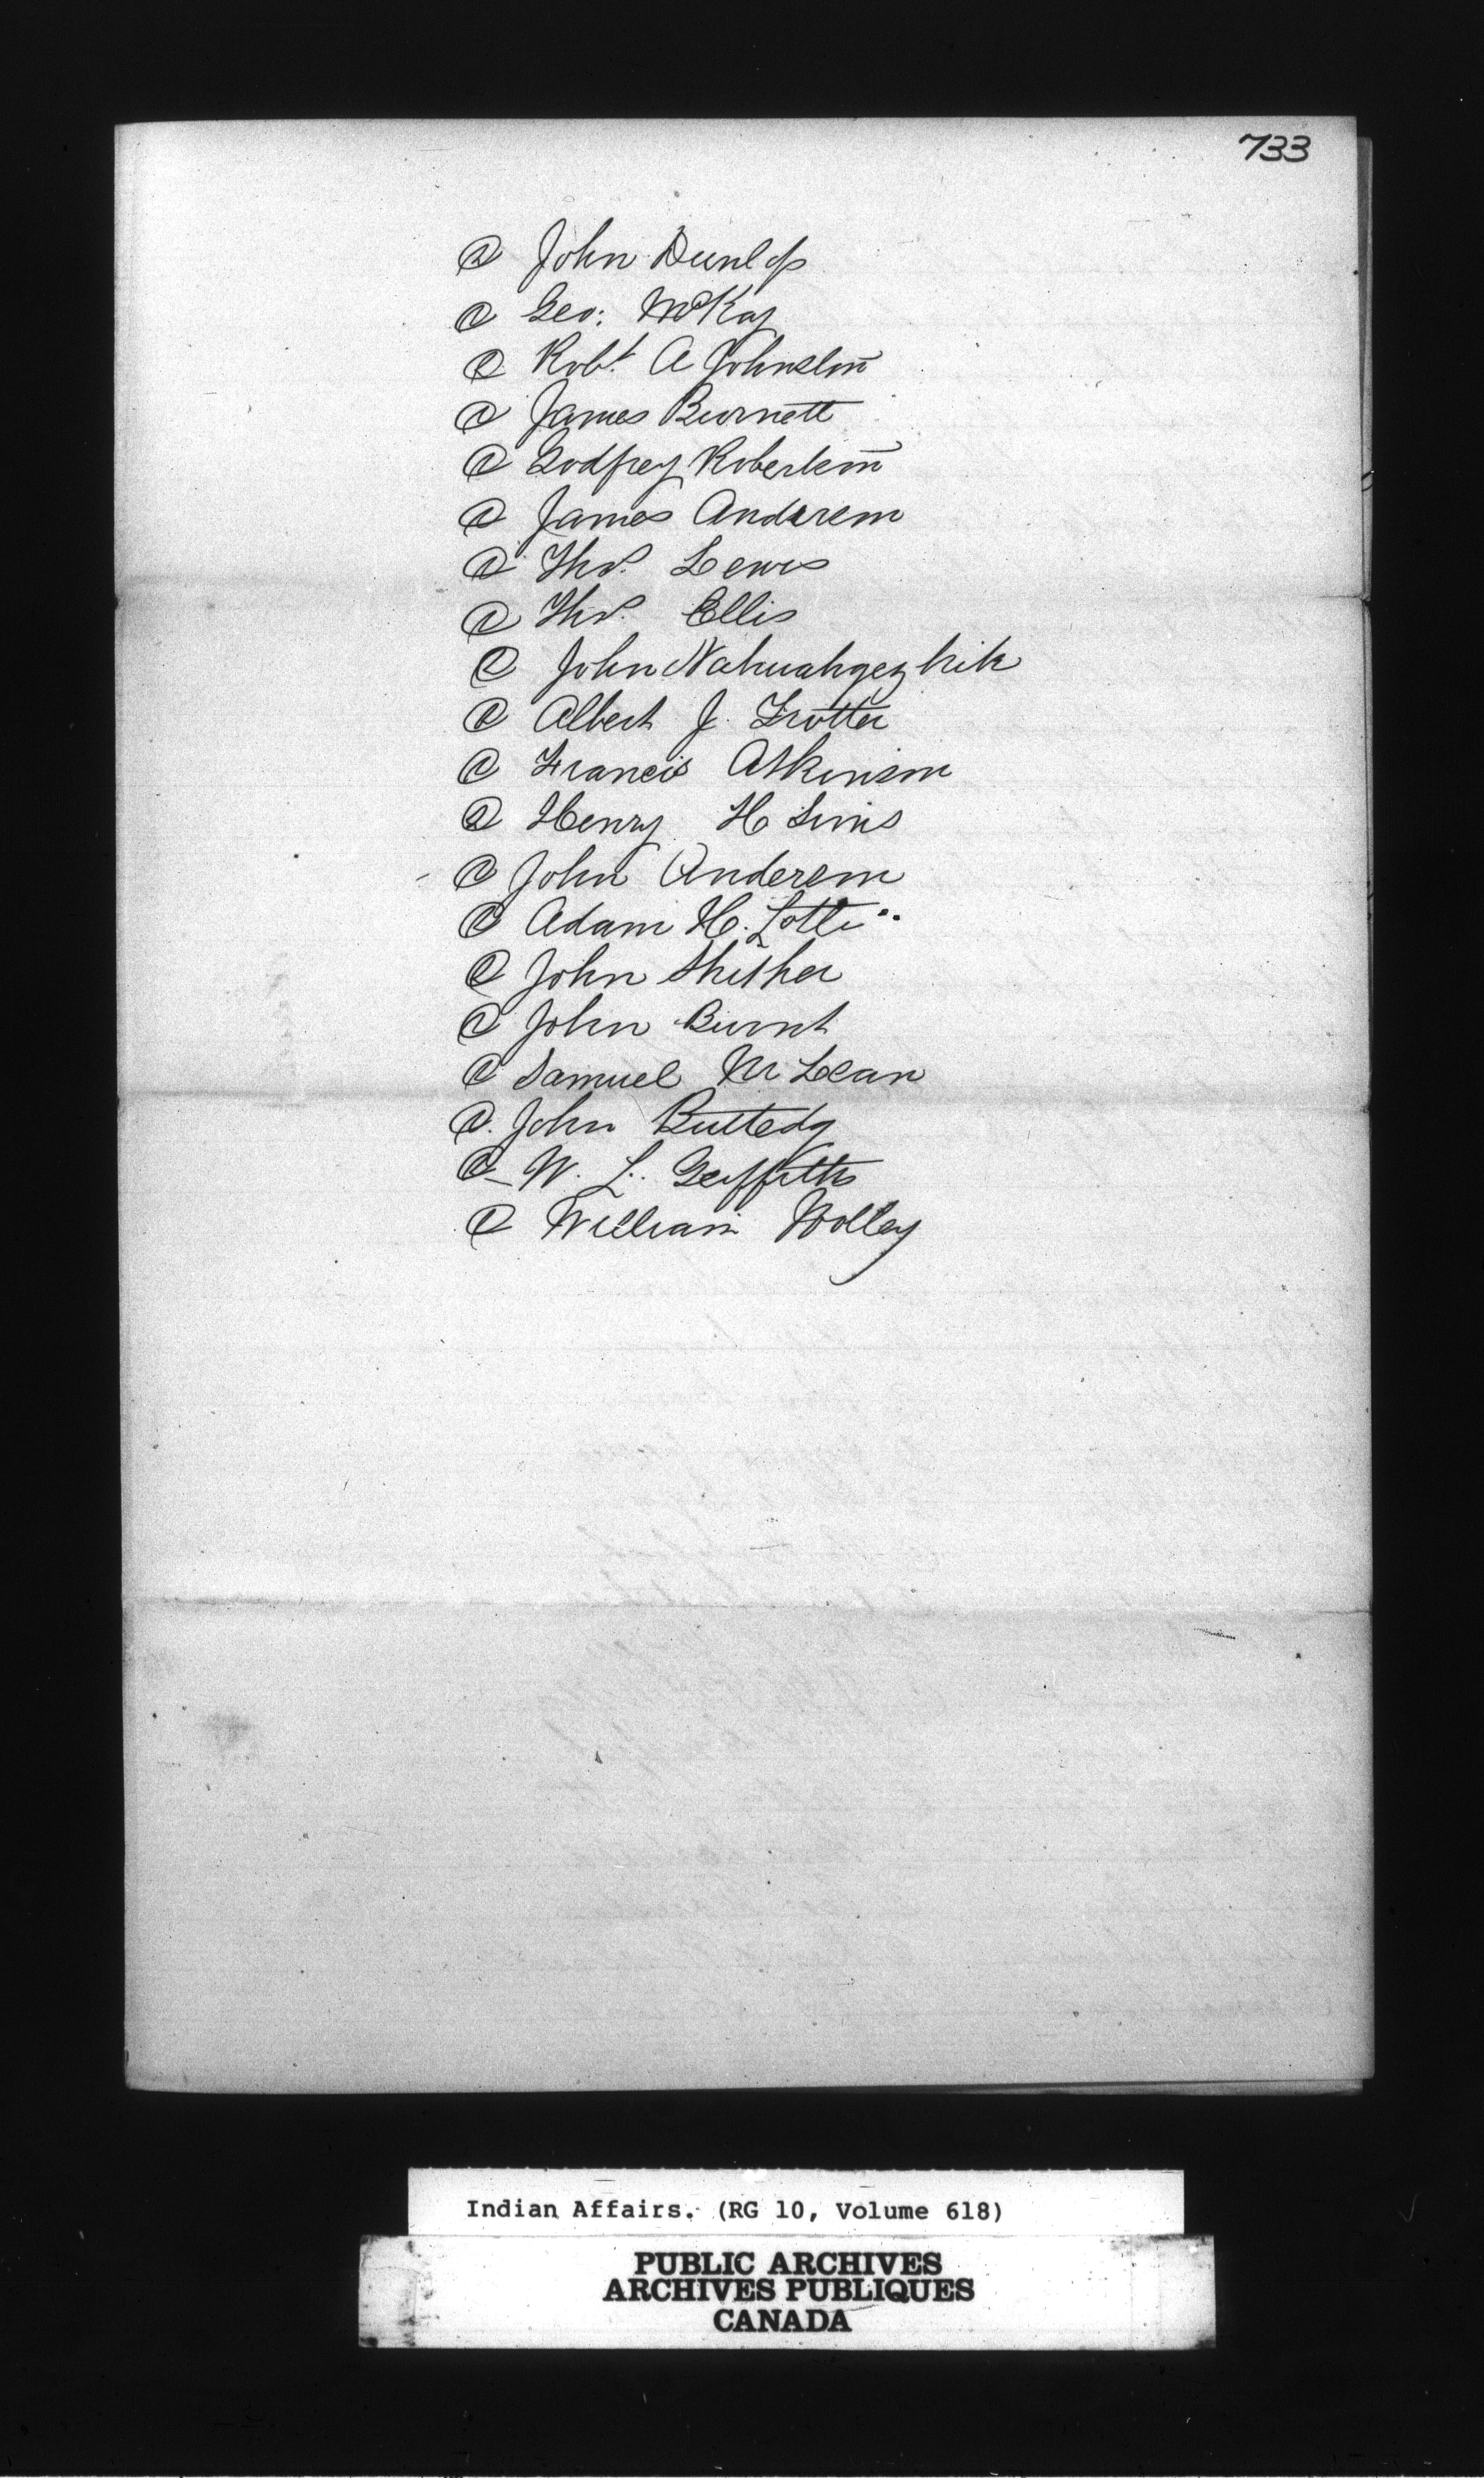 733
@ John Dunlop
@ Geo: McKay
@ Robt. A Johnston
@ James Burnett
@ Godfrey Robertson
@ James Anderson
@ Thos. Lewis
@ Thos. Ellis
@ John Nahwahgezhik
@ Albert J. Trotter
@ Francis Atkinson
@ Henry H Sims
@ John Anderson
@ Adam H.
@ John
@ John Burnt
@ Samuel McLean
@. John
@ W. L. Griffiths
@ William Wolley
Indian Affairs. (RG 10, Volume 618)
PUBLIC ARCHIVES
ARCHIVES PUBLIQUES
CANADA